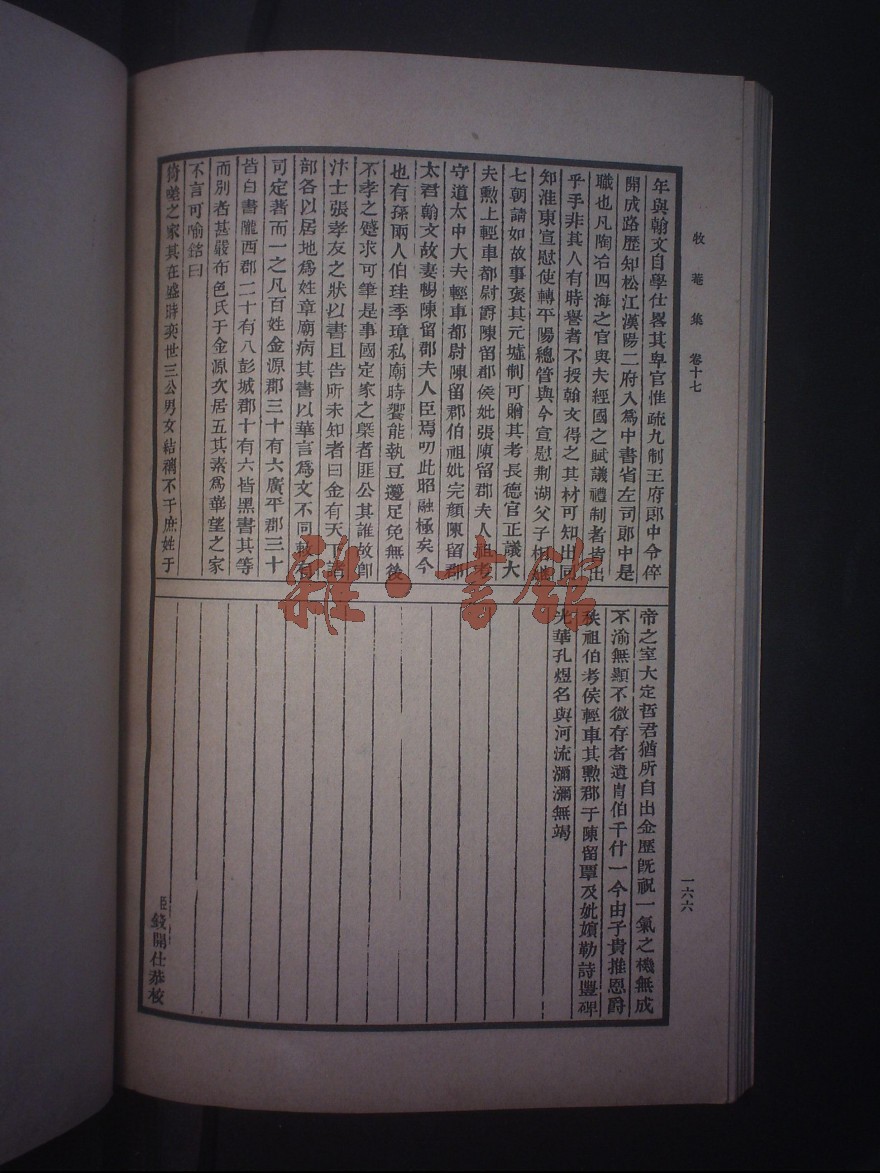 牧菴集 卷十七
一六六
年與翰文自學仕畧其卑官惟疏九制王府郎中令倅
開成路歷知松江漢陽二府入爲中書省左司郎中是
職也凡陶冶四海之官與夫經國之賦議禮制者皆出
乎手非其人有時譽者不授翰文得之其材可知出同
知淮東宣慰使轉平陽總管與今宣慰荆湖父子相繼
七朝請如故事褒其元墟制可贈其考長德官正議大
夫勲上輕車都尉爵陳留郡侯妣張陳留郡夫人祖考
守道太中大夫輕車都尉陳留郡伯祖妣完顏陳留郡
太君翰文故妻暢陳留郡夫人臣焉叨此昭融極矣今
也有孫兩人伯珪季璋私廟時饗能執豆籩足免無後
不孝之蹙求可筆是事國定家之槩者匪公其誰故卽
汴士張孝友之狀以書且告所未知者曰金有天下諸
部各以居地爲姓章廟病其書以華言爲文不同敕有
司定著而一之凡百姓金源郡三十有六廣平郡三十
皆白書隴西郡二十有八彭城郡十有六皆黑書其等
而別者甚嚴布色氏于金源次居五其素爲華望之家
不言可喻銘曰
猗嗟之家其在盛時奕世三公男女結褵不于庶姓于
帝之室大定哲君猶所自出金歷旣祝一氣之機無成
不渝無顯不微存者遺胄伯千什一今由子貴推恩爵
秩祖伯考侯輕車其勲郡于陳留覃及妣嬪勒詩豐碑
光華孔煜名與河流瀰瀰無竭
臣錢開仕恭校
雜·書館